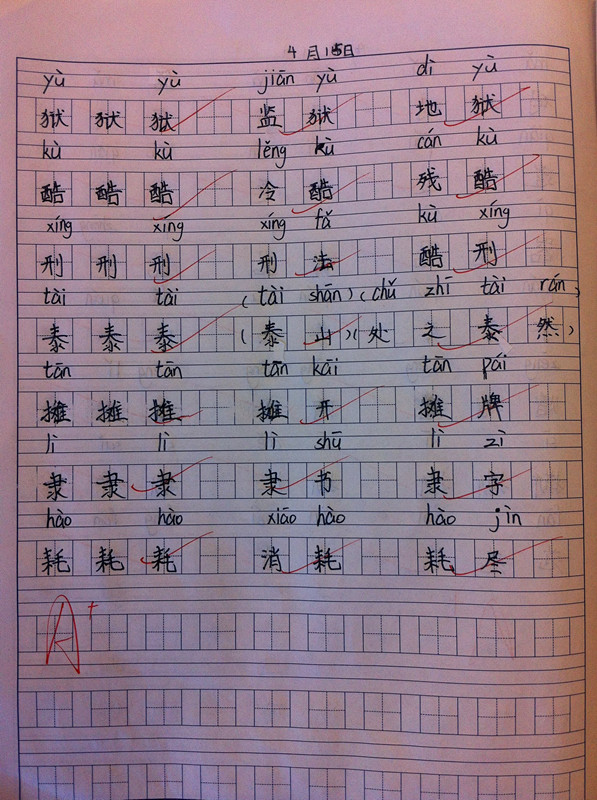 4月15日
yù yù jiān yù dì yù
狱 狱 狱 监 狱 地 狱
kù kù lěng kù cán kù
酷 酷 酷 冷 酷 残 酷
xíng xíng xíng fǎ kù xíng
刑 刑 刑 刑 法 酷 刑
tài tài (tài shān)(chǔ zhī tài rán)
泰 泰 泰 (泰 山)(处 之 泰 然)
tān tān tān kāi tān pái
摊 摊 摊 摊 开 摊 牌
lì lì lì shū lì zì
隶 隶 隶 隶 书 隶 字
hào hào xiāo hào hào jìn
耗 耗 耗 消 耗 耗 尽
A+